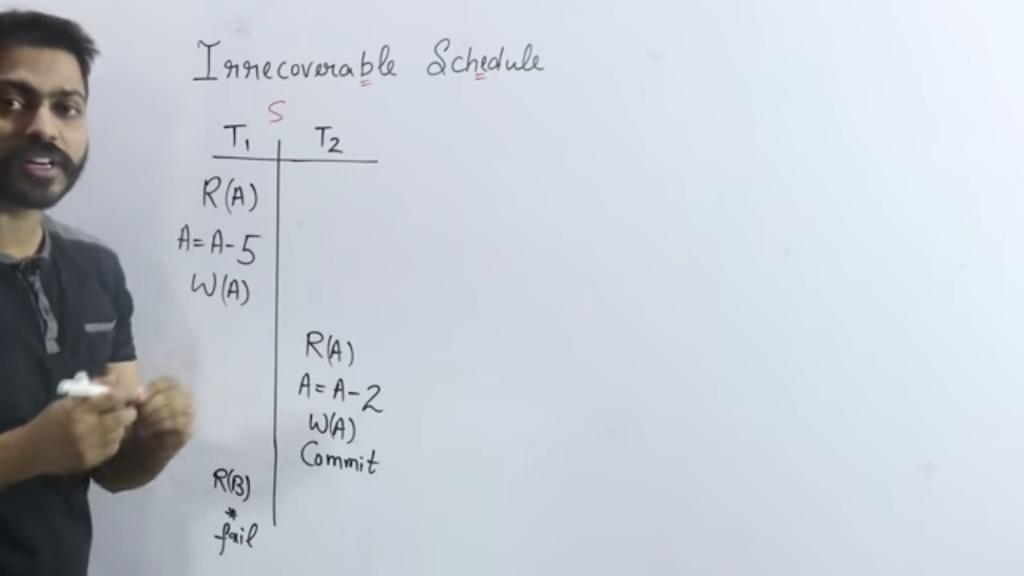 Irrecoverable Schedule
S
T1 T2
R(A)
A=A-5
W(A)
R(A)
A=A-2
W(A)
Commit
R(B)
*
fail